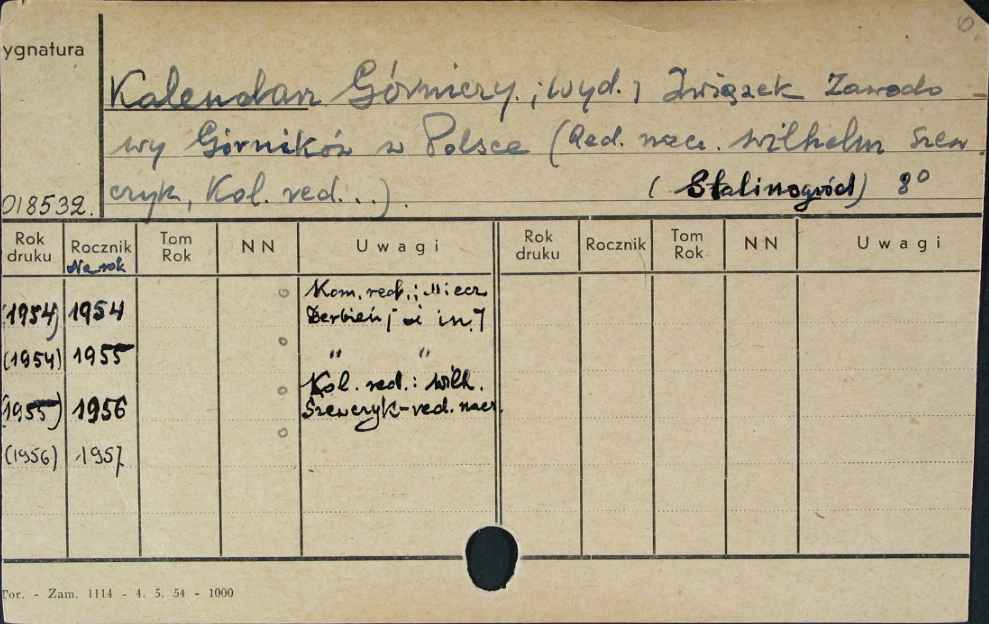 6
ygnatura
Kalendarz Górniczy. ; [Wyd.] Związek Zawodo-
wy Górników w Polsce (Red. nacz. Wilhelm Szew
czyk, Kol. red...). (Stalinogród) 8°
018532.
Rok druku Rocznik Tom Rok NN Uwagi Rok druku Rocznik Tom Rok NN Uwagi
Na rok
(1954) 1954 Kom. red.: Miecz
i in.]
(1954) 1955 " "
(1955) 1956 Kol. red.: Wilh.
Szewczyk-red. nacz.
(1956) 1957
Tor. - Zam. 1114 - 4. 5. 54 - 1000